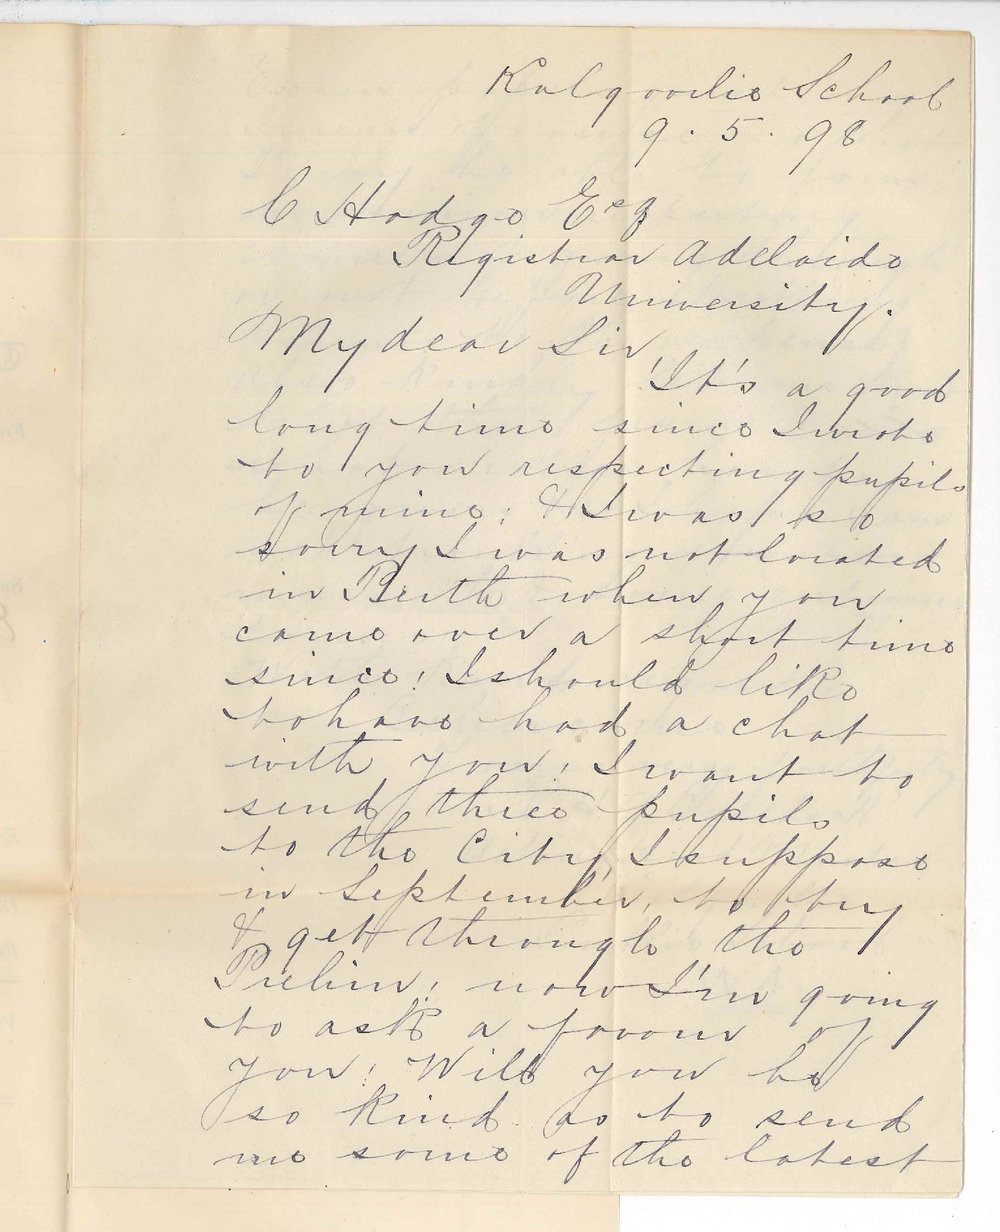 Kalgoorlie School
9. 5. 98
C Hodge Esq
Registrar Adelaide
University.
My dear Sir,
'It's a good
long time since I wrote
to you respecting pupils
of mine; & I was so
sorry I was not located
in Perth when you
came over a short time
since; I should like
to have had a chat
with you; I want to
send three pupils
to the City, I suppose
in September, to try
& get through the
Prelim; now I'm going
to ask a favour of
you; Will you be
so kind as to send
me some of the latest